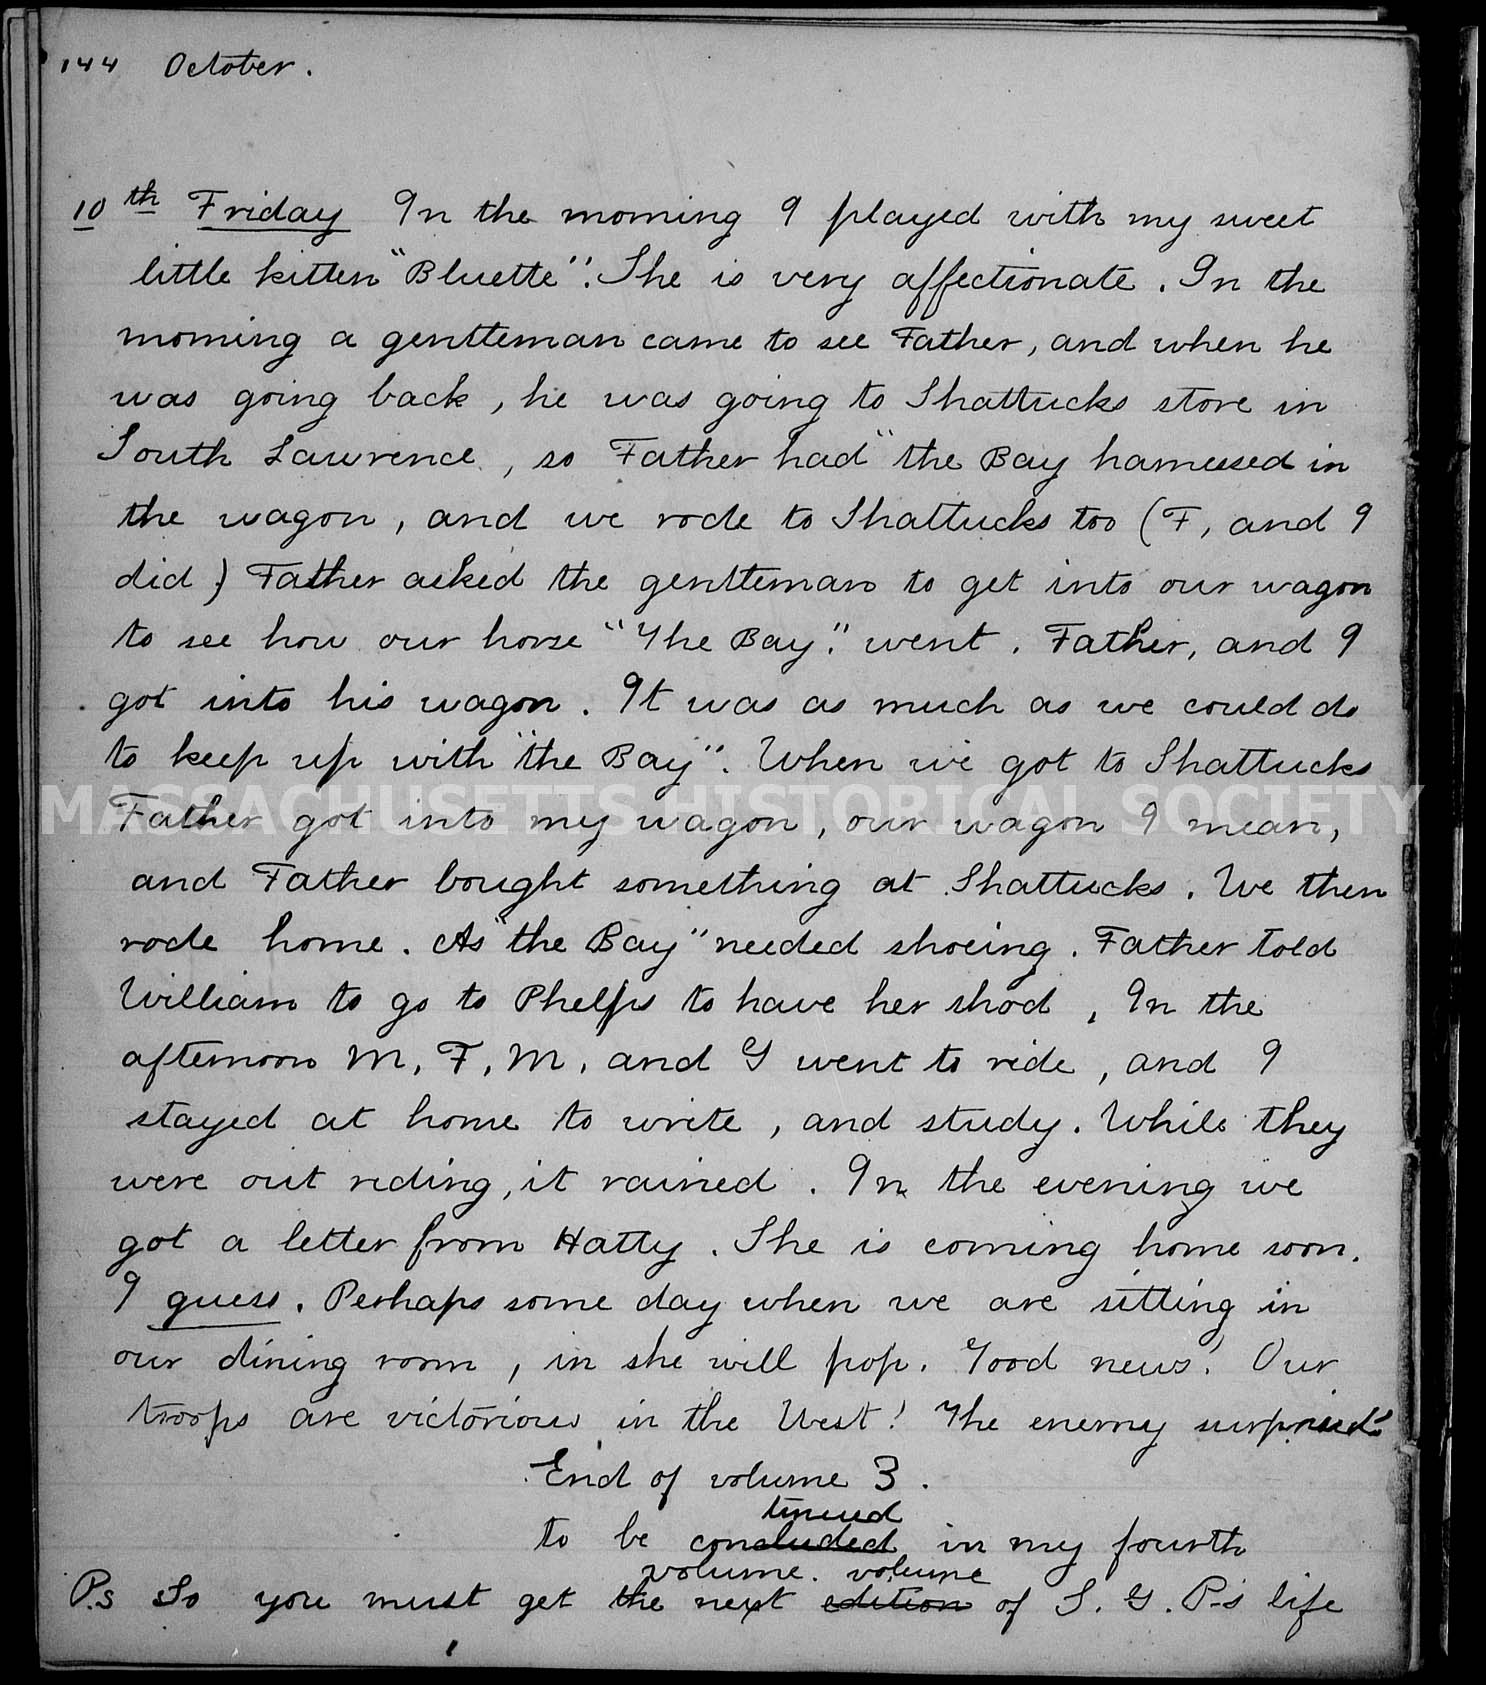 144 October.
10th Friday In the morning I played with my sweet
little kitten "Bluette". She is very affectionate. In the
morning a gentleman came to see Father, and when he
was going back, he was going to Shattucks store in
South Lawrence, so Father had "the Bay harnessed in
the wagon, and we rode to Shattucks too (F, and I
did) Father asked the gentleman to get into our wagon
to see how our horse "The Bay." went. Father, and I
got into his wagon. It was as much as we could do
to keep up with "the Bay". When we got to Shattucks
MASSACHUSETTS HISTORICAL SOCIETY
Father got into my wagon, our wagon I mean,
and Father bought something at Shattucks. We then
rode home. As "the Bay" needed shoeing. Father told
William to go to Phelps to have her shod, In the
afternoon M, F, M, and G went to ride, and I
stayed at home to write, and study. While they
were out riding, it rained. In the evening we
got a letter from Hatty. She is coming home soon.
I guess. Perhaps some day when we are sitting in
our dining room, in she will pop. Good news! Our
troops are victorious in the West! The enemy surprised
End of volume 3.
tinued
to be concluded in my fourth
volume. volume
P.s So you must get the next edition of S. G. P.'s life